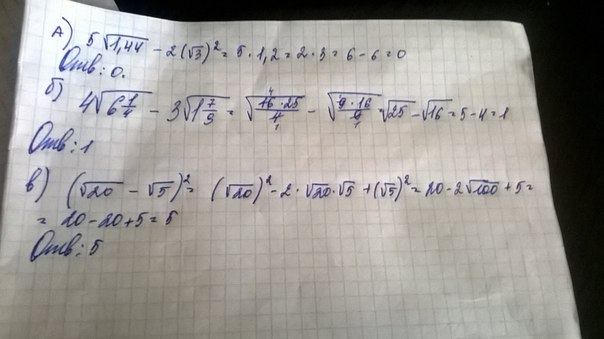 А) 5√1,44 - 2(√3)² = 5 · 1,2 = 2 · 3 = 6 - 6 = 0
Отв: 0.
б) 4√6 1/4 - 3√1 7/9 = √16·25/4 - √9·16/9 √25 - √16 = 5 - 4 = 1
Отв: 1
в) (√20 - √5)² = (√20)² - 2 · √20 · √5 + (√5)² = 20 - 2√100 + 5 =
= 20 - 20 + 5 = 5
Отв: 5